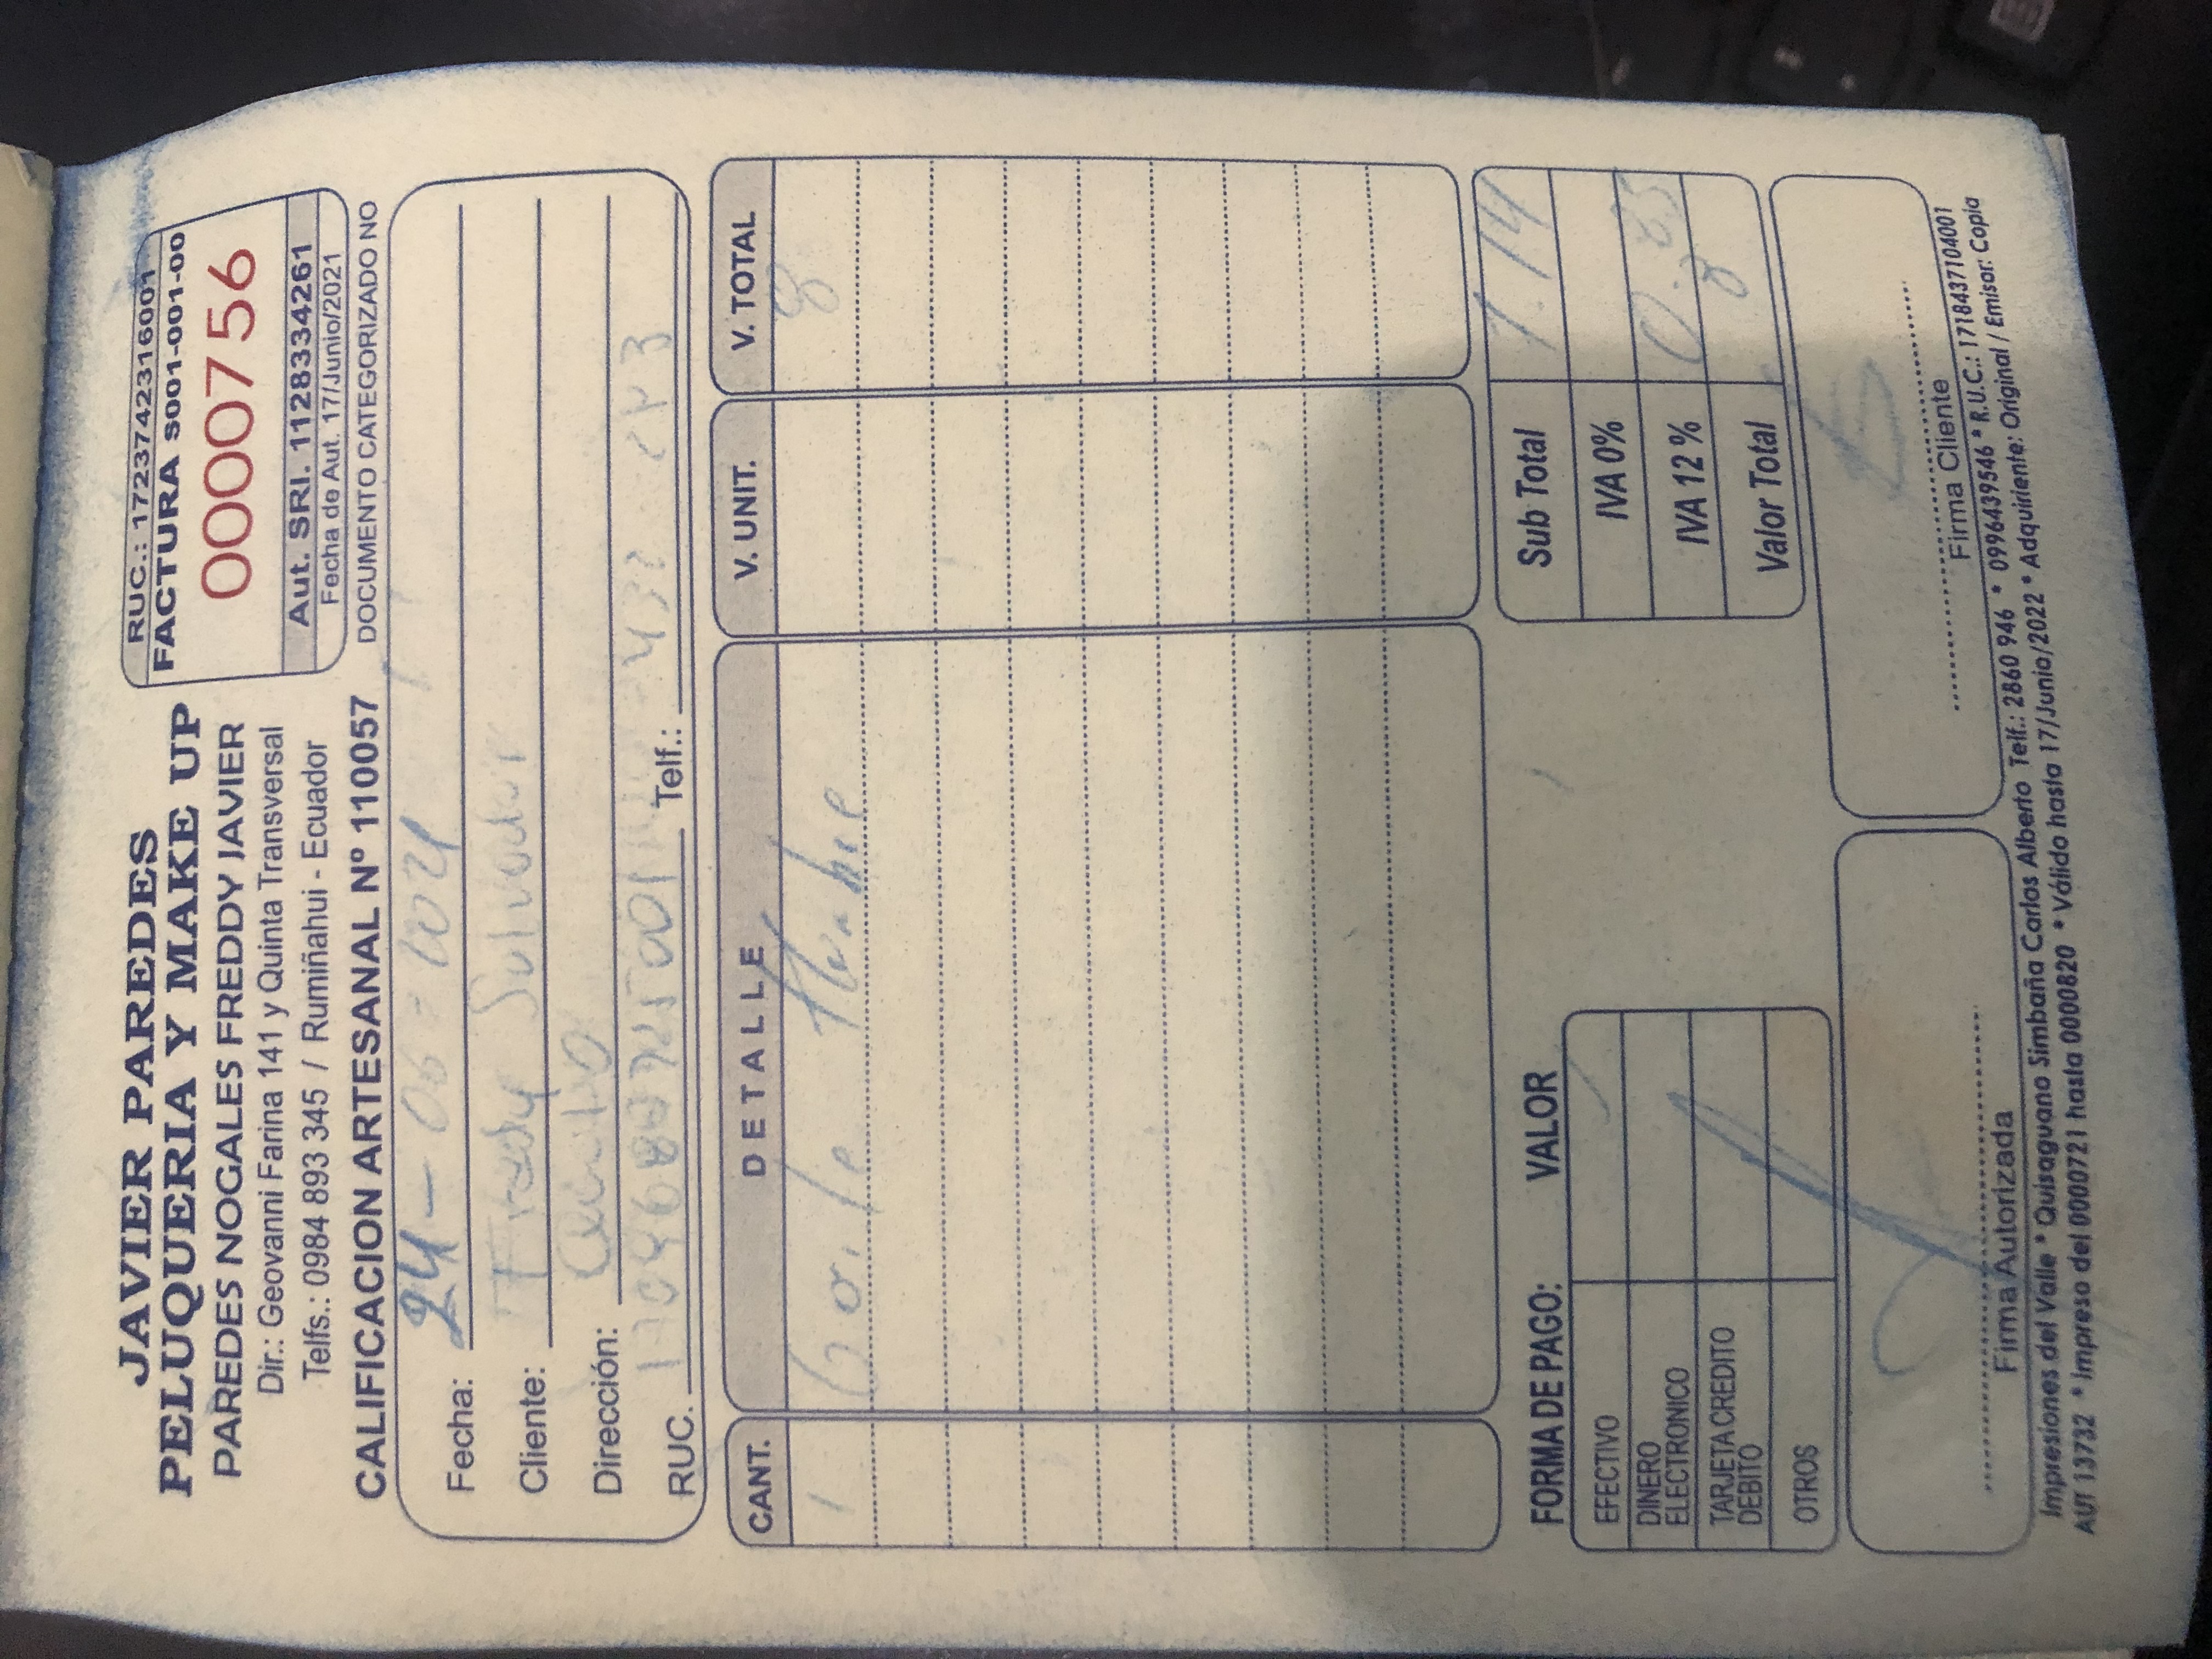 JAVIER PAREDES
PELUQUERIA Y MAKE UP
PAREDES NOGALES FREDDY JAVIER
Dir.: Geovanni Farina 141 y Quinta Transversal
Telfs.: 0984 893 345 / Rumiñahui - Ecuador
CALIFICACION ARTESANAL Nº 110057
RUC.: 1723742316001
FACTURA S001-001-00
0000756
Aut. SRI. 1128334261
Fecha de Aut. 17/Junio/2021
DOCUMENTO CATEGORIZADO NO
Fecha: 24 - 06 - 2021
Cliente: Fredy Salvador
Dirección: Quito
RUC. Telf.:
CANT. DETALLE V. UNIT. V. TOTAL
1 Corte Hombre 8
FORMA DE PAGO: VALOR
EFECTIVO
DINERO
ELECTRONICO
TARJETA CREDITO
DEBITO
OTROS
Sub Total
IVA 0%
IVA 12 % 0.85
Valor Total 8
Firma Autorizada
Firma Cliente
Impresiones del Valle * Quisaguano Simbaña Carlos Alberto Telf.: 2860 946 * 0996439546 * R.U.C.: 1718437104001
AUT 13732 * Impreso del 0000721 hasta 0000820 * Válido hasta 17/Junio/2022 * Adquiriente: Original / Emisor: Copia